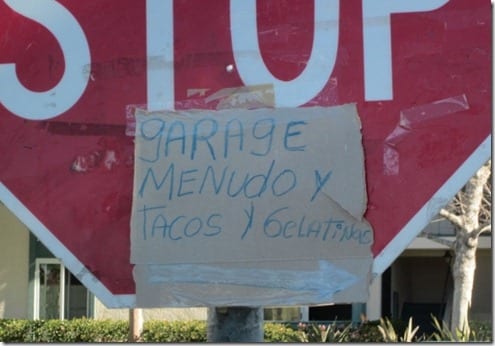 STOP
GARAGE
MENUDO Y
TACOS Y GELATINAS